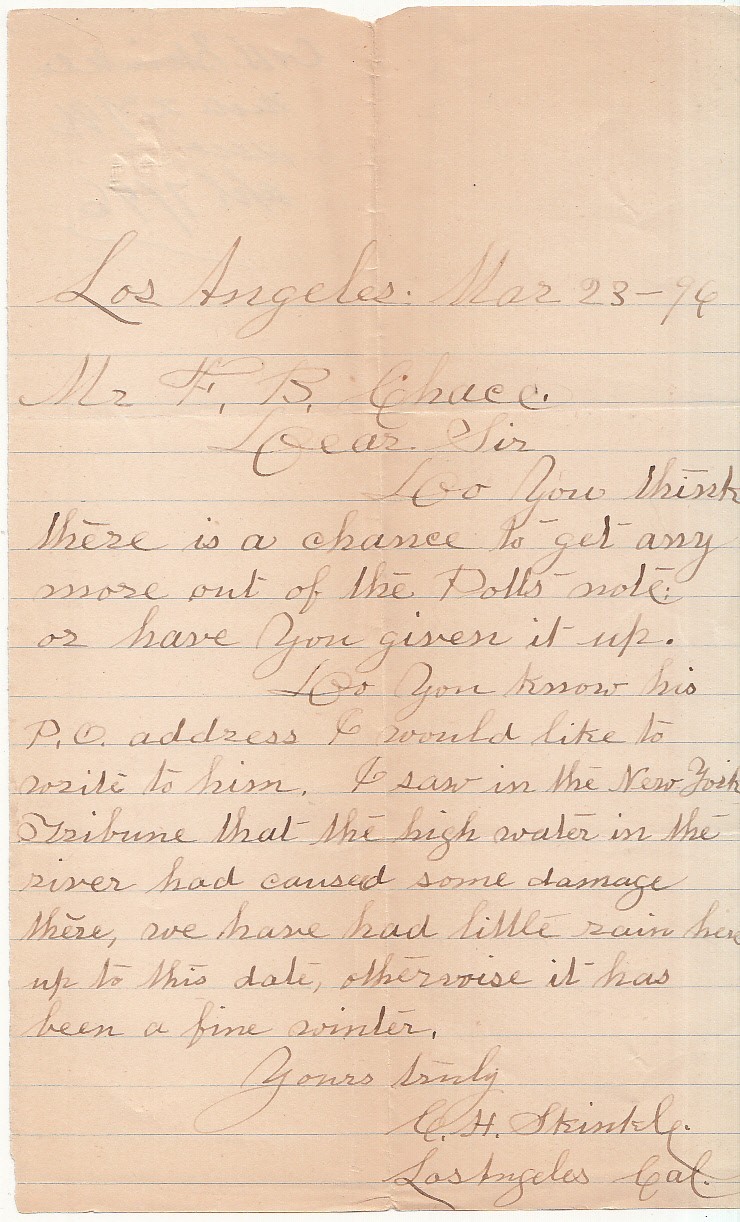 Los Angeles. Mar 23-96
Mr F. B. Chace.
Dear Sir
Do You think
there is a chance to get any
more out of the Potts note.
or have You given it up.
Do You know his
P.O. address I would like to
write to him. I saw in the New York
Tribune that the high water in the
river had caused some damage
there, we have had little rain here
up to this date, otherwise it has
been a fine winter.
Yours truly
C. H. Skinkle.
Los Angeles Cal.